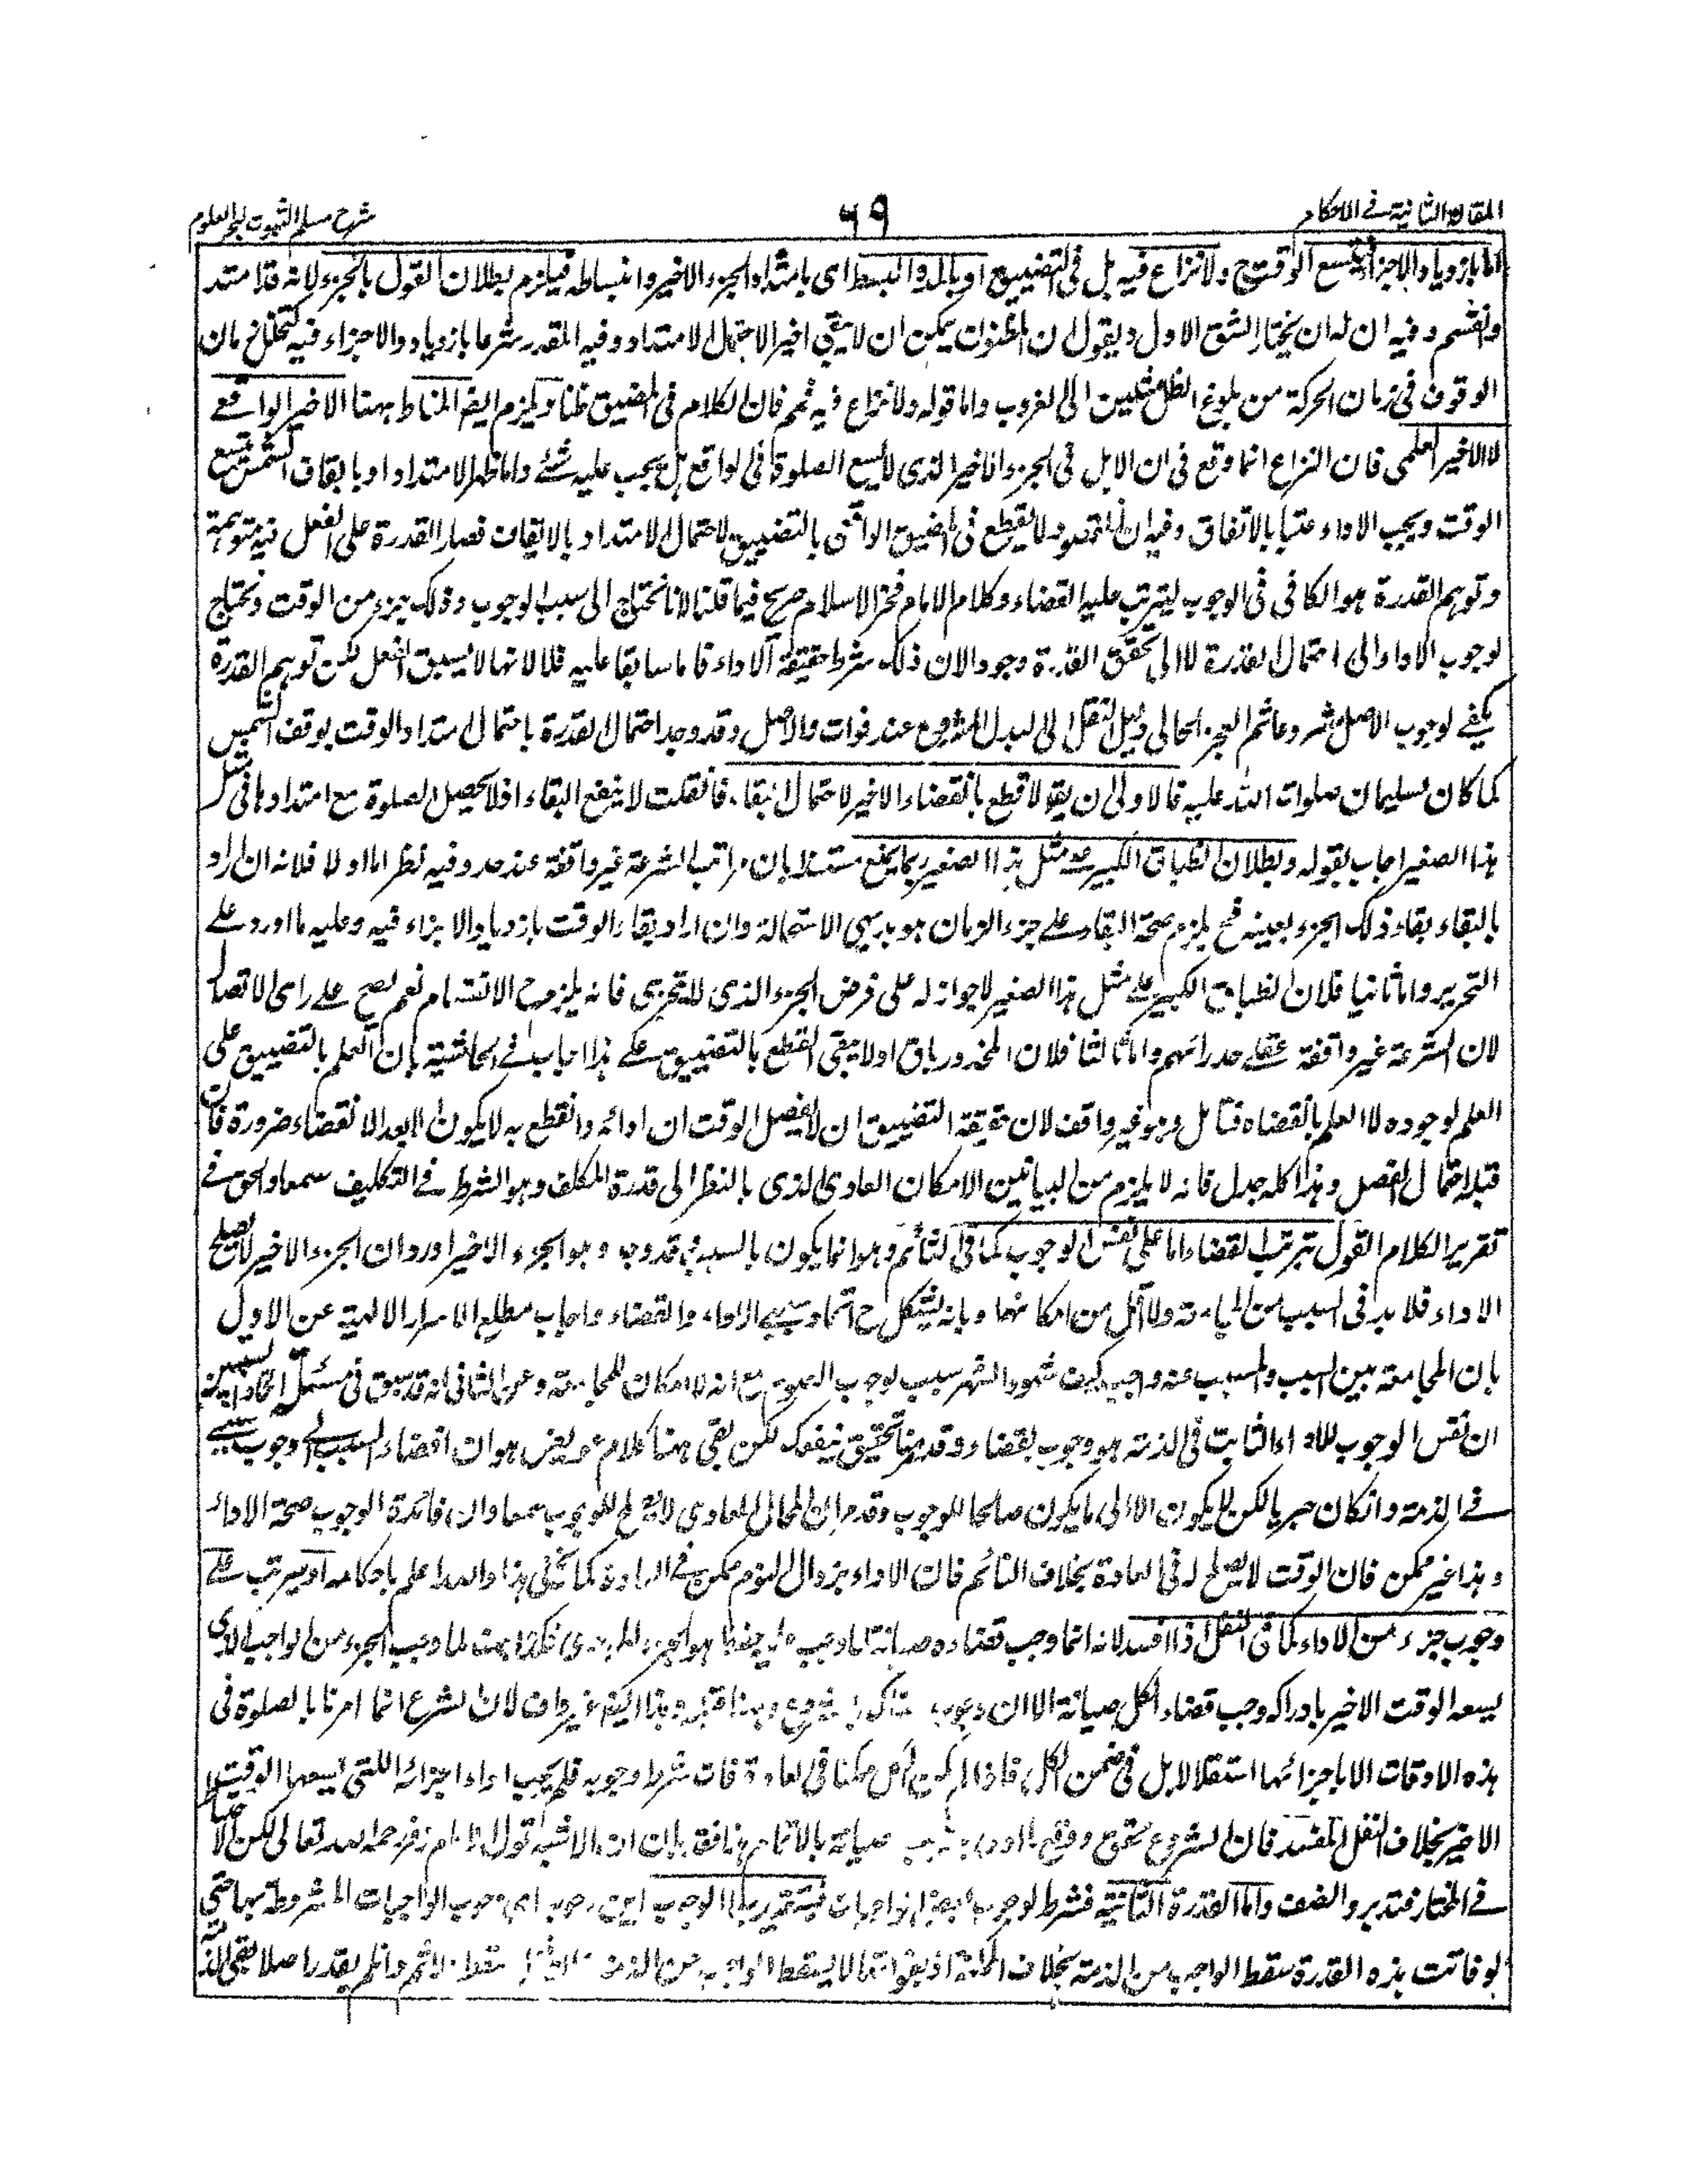 المقالة الثانية في الاحكام
٦٩
شرح مسلم الثبوت لبحر العلوم
اما بازدياد الاجزاء فيتسع الوقت ح ولا نزاع فيه بل في التضييق او بالمد والبسط اى بامتداد الجزء الاخير وانبساطه فيلزم بطلان القول بالجزء لانه قد امتد
وانقسم وفيه ان له ان يختار الشق الاول ويقول ان المظنون يمكن ان لا يبقى اخير الاحتمال الامتداد وفيه المقدر شرعا بازدياد الاجزاء فيه كتخلخل زمان
الوقوف في زمان الحركة من بلوغ الظل مثلين الى الغروب واما قوله ولا نزاع فيه ثم فان الكلام في المضيق ظنا ويلزم ايضا المناط ههنا الاخير الواقعي
لا الاخير العلمى فان النزاع انما وقع في ان الاهل في الجزء الاخير الذى لا يسع الصلوة في الواقع هل يجب عليه شئ واما ظهر الامتداد او بايقاف الشمس يتسع
الوقت ويجب الاداء عينا بالاتفاق وفيه ان المقصود لا يقطع في المضيق الواقعى بالتضييق لاحتمال الامتداد بالايقاف فصار القدرة على الفعل فيه متوهمة
وتوهم القدرة هو الكافى فى الوجوب ليترتب عليه القضاء وكلام الامام فخر الاسلام صريح فيما قلنا لانا نحتاج الى سبب الوجوب وذلك جزء من الوقت ونحتاج
لوجوب الاداء الى احتمال القدرة لا الى تحقق القدرة وجودا لان ذلك شرط حقيقة الاداء فاما سابقا عليه فلا لانها لا يسبق الفعل لكن توهم القدرة
يكفى لوجوب الاصل مشروعا ثم العجز الحالى دليل النقل الى البدل المشروع عند فوات الاصل وقد وجد احتمال القدرة باحتمال امتداد الوقت بوقف الشمس
كما كان لسليمان صلوات الله عليه فالاولى ان يقال لا قطع بانقضاء الاخير لاحتمال البقاء فان قلت لا ينفع البقاء اذ لا يحصل الصلوة مع امتدادها في مثل
هذا الصغير اجاب بقوله وبطلان انطباق الكبير على مثل هذا الصغير ربما يمنع مستندا بان مراتب السرعة غير واقفة عند حد وفيه نظر اما اولا فلانه ان اراد
بالبقاء بقاء ذلك الجزء بعينه فح يلزم صحة البقاء على جزء الزمان هو بديهي الاستحالة وان اراد بقاء الوقت بازدياد الاجزاء فيه وعليه ما اورد على
التحرير واما ثانيا فلان انطباق الكبير على مثل هذا الصغير لا جواز له على فرض الجزء الذى لا يتجزى فانه يلزم ح الانقسام نعم يصح على راى الاتصال
لان السرعة غير واقفة على حد رائهم واما ثالثا فلان المحذور باق اولا يبقى القطع بالتضييق على هذا اجاب في الحاشية بان العلم بالتضييق على
العلم لوجوده لا العلم بانقضاه فتامل وهو غير واقف لان حقيقة التضييق ان لا يفضل الوقت ان ادائه والقطع به لا يكون الا بعد الانقضاء ضرورة فان
قبله احتمال الفضل وهذا كله جدل فانه لا يلزم من البيانين الامكان العادى الذى بالنظر الى قدرة المكلف وهو الشرط في التكليف سمعا والحق في
تقرير الكلام القول بترتب القضاء اما على نفس الوجوب كما في النائم وهو انما يكون بالسبب قد وجد وهو الجزء الاخير اورد ان الجزء الاخير لا يصلح
الاداء فلا بد فى السبب من المجامعة ولا اقل من امكانها وبانه يشكل ح اتحاد سببي الاداء والقضاء واجاب مطلع الاسرار الالهية عن الاول
بان المجامعة بين السبب والمسبب عنه واجب كيف شهود الشهر سبب لوجوب الصوم مع انه لا امكان للمجامعة وعن الثانى انه قد سبق في مسئلة اتحاد السببين
ان نفس الوجوب للاداء الثابت في الذمة هو وجوب القضاء وقد مر منا تحقيق ينفعك لكن بقى ههنا كلام عويص هو ان افضاء السبب الى وجوب شئ
في الذمة وانكان جبريا لكن لا يكون الا الى ما يكون صالحا للوجوب وقد مر ان المحال العادى لا يصلح للوجوب سمعا وان فائدة الوجوب صحة الاداء
وهذا غير ممكن فان الوقت لا يصلح له في العادة بخلاف النائم فان الاداء بزوال النوم ممكن في العادة كما لا يخفى هذا والله اعلم باحكامه او يترتب على
وجوب جزء من الاداء كما في النفل اذا افسد لانه انما وجب قضاؤه صيانة لما وجب عليه حفظا هو الجزء المؤدى فكذا ههنا لما وجب الجزء من الواجب الذى
يسعه الوقت الاخير بادراكه وجب قضاء الكل صيانة الا ان وجوب هناك بالشروع وههنا قبله وهذا ايضا غير واف لان الشرع انما امرنا بالصلوة فى
هذه الاوقات الا باجزائها استقلالا بل في ضمن الكل فاذا لم يكن الكل ممكنا في العادة فات شرط وجوبه فلم يجب اداء اجزائه اللتى يسعها الوقت
الاخير بخلاف النفل المفسد فان الشروع صحيح ووقع ما ادى صيانة بالاتمام فافترقا بان ان الاشبه قول الامام زفر رحمه الله تعالى لكن الاحتياط
في المختار فتدبر وانصف واما القدرة الثانية فشرط لوجوب بعض الواجبات فيتقدر بها الوجوب اى وجوب الواجبات المشروطة بها حتى
لو فاتت هذه القدرة سقط الواجب من الذمة بخلاف الممكنة اذ بفواتها لا يسقط الواجب عن الذمة